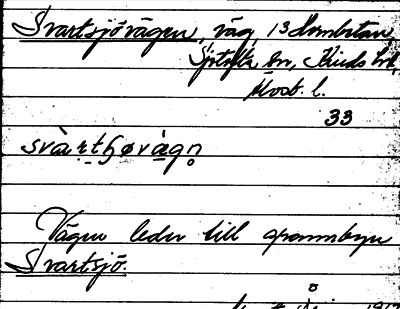 Svartsjövägen, väg, 13 Hornbetan,
Sjötofta sn, Kinds hd,
Älvsb. l.
33
svàrtɧøvàgn̥
Vägen leder till grannbyn
Svartsjö.